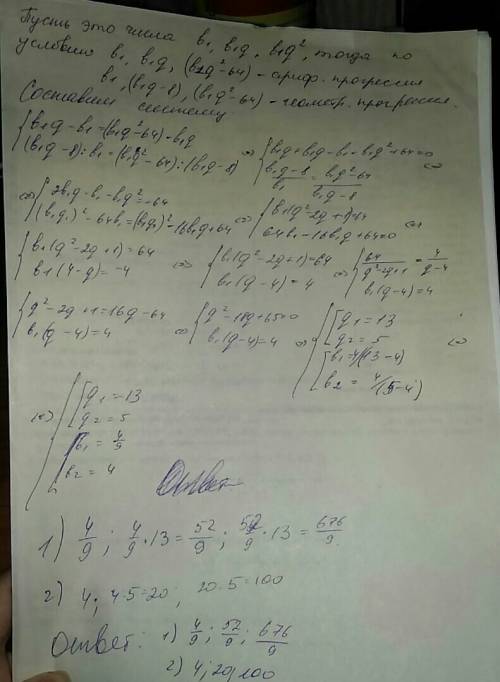 Пусть это числа b₁, b₁q, b₁q², тогда по
условию b₁, b₁q, (b₁q²-64) - ариф. прогрессия
b₁, (b₁q-8), (b₁q²-64) - геометр. прогрессия.
Составим систему
{b₁q - b₁ = (b₁q²-64) - b₁q
(b₁q-8):b₁ = (b₁q²-64):(b₁q-8) ⇔ {b₁q+b₁q-b₁-b₁q²+64=0
(b₁q-8)/b₁ = (b₁q²-64)/(b₁q-8) ⇔
⇔ {2b₁q-b₁-b₁q²=-64
(b₁q)²-64b₁=(b₁q)²-16b₁q+64 ⇔ {b₁(q²-2q+1)=64
64b₁-16b₁q+64=0 ⇔
{b₁(q²-2q+1)=64
b₁(4-q)=-4 ⇔ {b₁(q²-2q+1)=64
b₁(q-4)=4 ⇔ {64/(q²-2q+1)=4/(q-4)
b₁(q-4)=4
{q²-2q+1=16q-64
b₁(q-4)=4 ⇔ {q²-18q+65=0
b₁(q-4)=4 ⇔ {[q₁=13
q₂=5
[b₁=4/(13-4)
b₂=4/(5-4) ⇔
⇔ {[q₁=13
q₂=5
[b₁=4/9
b₂=4
Ответ
1) 4/9; 4/9·13=52/9; 52/9·13=676/9
2) 4; 4·5=20; 20·5=100
Ответ: 1) 4/9; 52/9; 676/9
2) 4; 20; 100